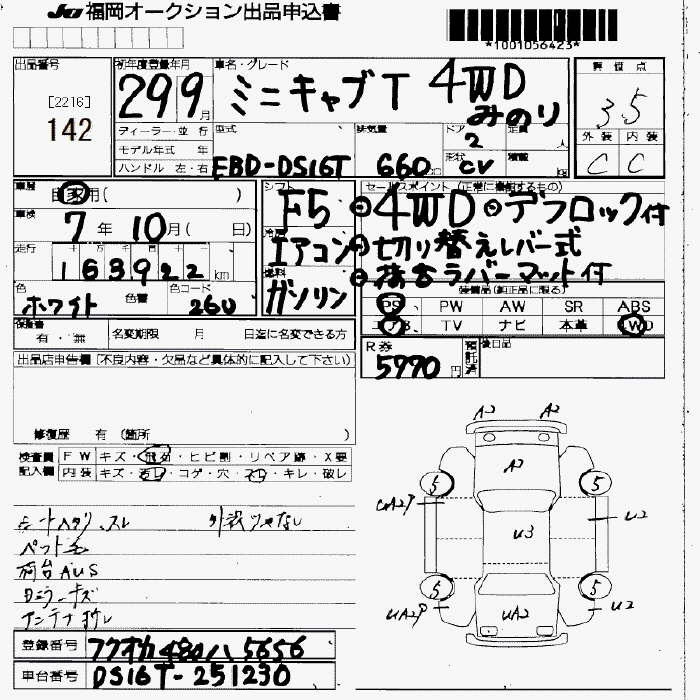 JU福岡オークション出品申込書
*1001056423*
出品番号
[2216]
142
初年度登録年月
29 9月
車名・グレード
ミニキャブT 4WD みのり
ディーラー・並行
モデル年式 年
ハンドル 左・右
型式
EBD-DS16T
排気量
660cc
ドア
2
形状
CV
定員 人
積載 kg
評価点
3.5
外装 内装
C C
車歴
自家用( )
車検
7年10月( 日)
走行
十万千百十一
163922km
色
ホワイト
色替
色コード
260
シフト
F5
冷房
エアコン
燃料
ガソリン
セールスポイント(正常に機能するもの)
◎4WD◎デフロック付
◎切り替えレバー式
◎荷台ラバーマット付
装備品(純正品に限る)
PS PW AW SR ABS
エアB TV ナビ 本革 4WD
保証書
有・無
名変期限 月 日迄に名変できる方
R券
5770円
預託済
後日品
出品店申告欄(不良内容・欠品など具体的に記入して下さい)
修復歴 有 (箇所 )
検査員記入欄
FW キズ・飛石・ヒビ割・リペア跡・X要
内装 キズ・汚レ・コゲ・穴・スレ・キレ・破レ
シートヘタリ、スレ
外装ツヤなし
ペット毛
荷台AUS
アンテナ
A2 A2
A2
5 5
U3
U2
5 5
UA2P UA2 U2
登録番号 フクオカ480ハ5656
車台番号 DS16T-251230